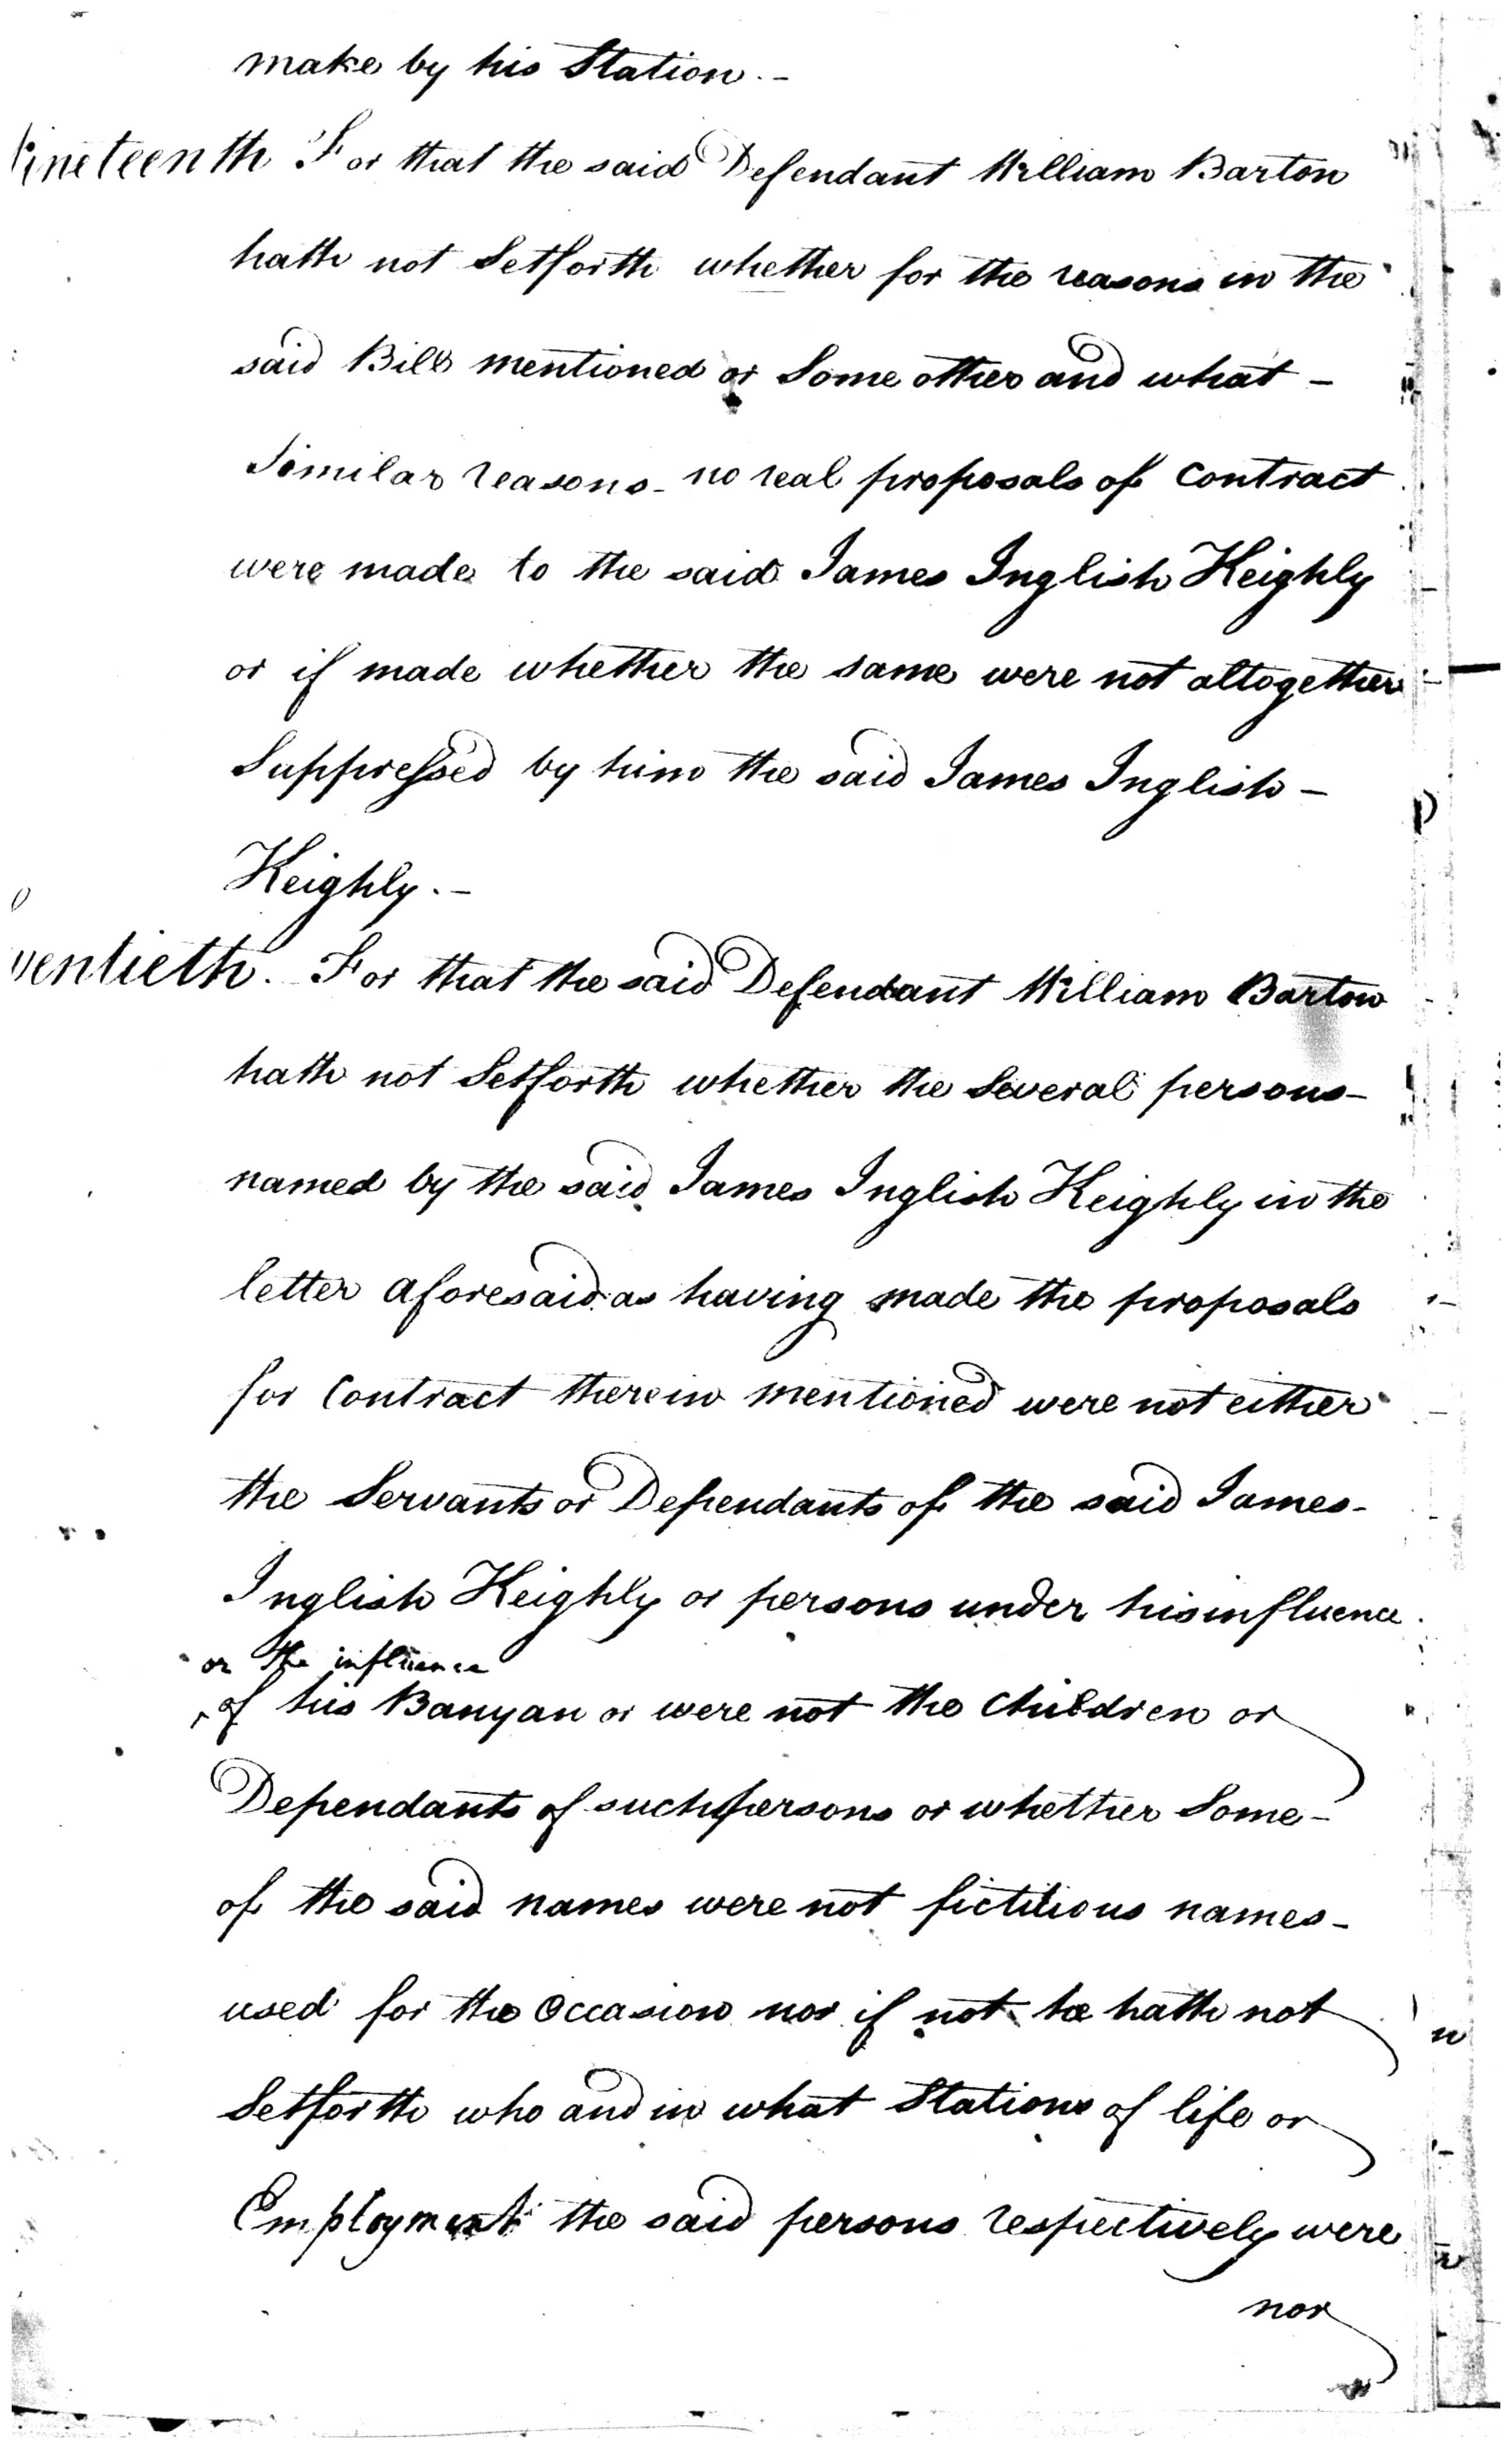 make by his Station. -
Nineteenth For that the said Defendant William Barton
hath not Setforth whether for the reasons in the
said Bill mentioned or Some other and what -
Similar reasons - no real proposals of Contract
were made to the said James Inglish Keighly
or if made whether the same were not altogether
Suppressed by him the said James Inglish -
Keighly. -
wentieth. For that the said Defendant William Barton
hath not Setforth whether the Several persons -
named by the said James Inglish Keighly in the
letter aforesaid as having made the proposals
for Contract therein mentioned were not either
the Servants or Dependants of the said James -
Inglish Keighly or persons under his influence
or the influence
of his Banyan or were not the Children or
Dependants of such persons or whether Some -
of the said names were not fictitious names -
used for the Occasion nor if not he hath not
Setforth who and in what Stations of life or
Employment the said persons respectively were
nor